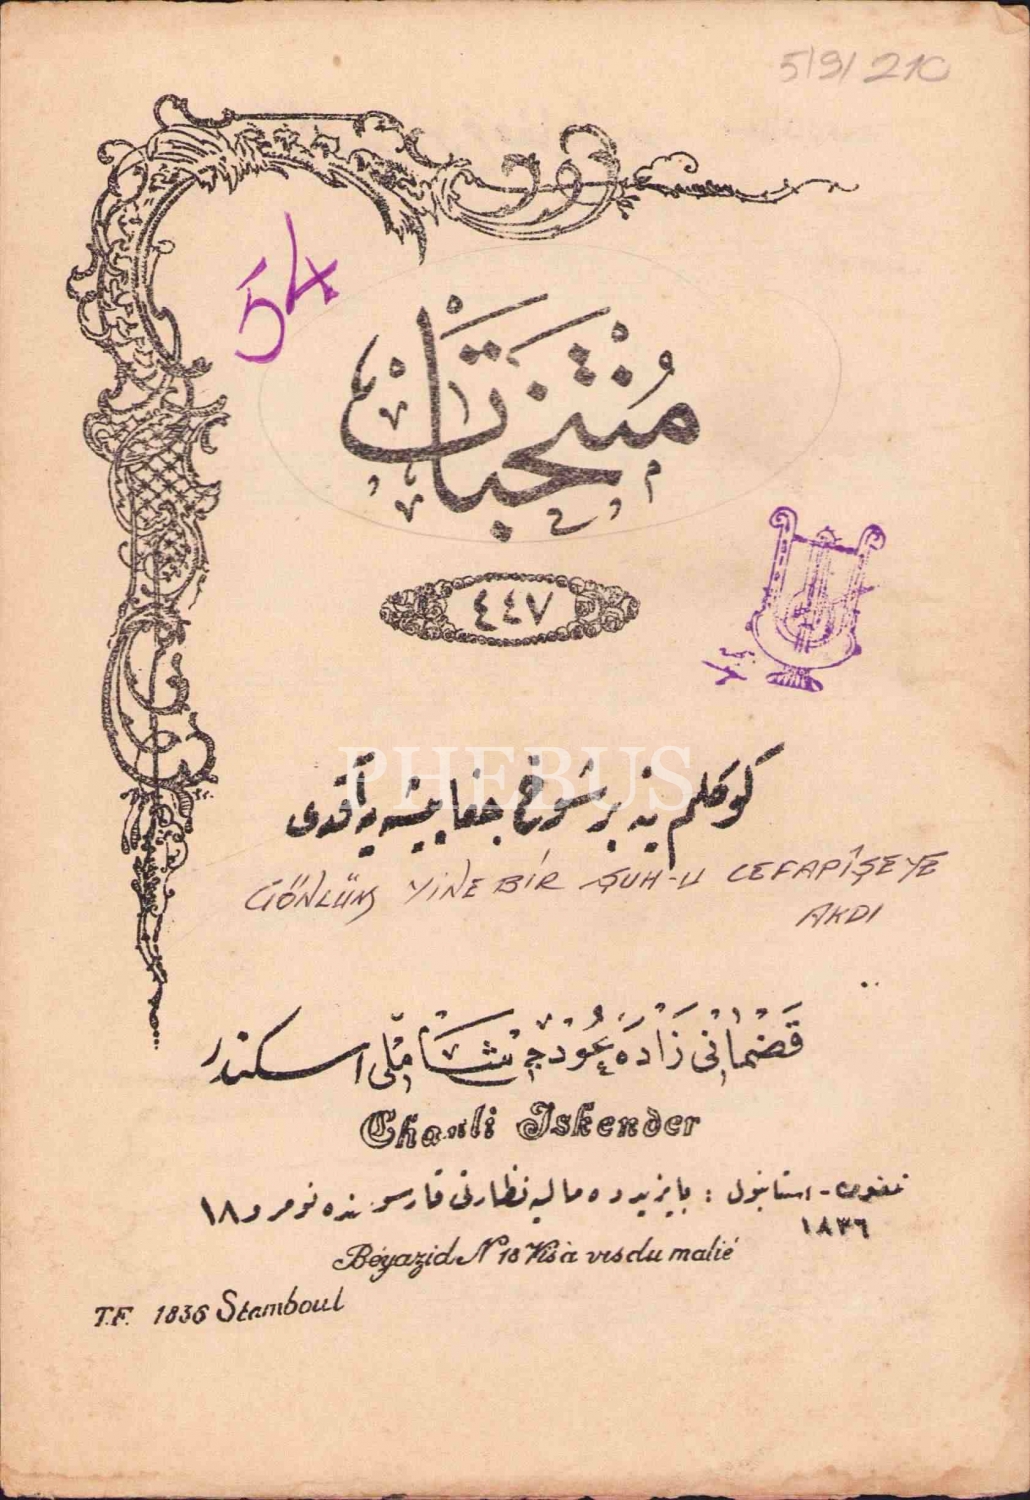 5/9/210
54
مُنْتَخَبَات
٤٤٧
PHEBUS
كوكلم ينه بر شوخ جفا پيشه يه آقدى
GÖNLÜM YİNE BİR ŞUH-U CEFAPİŞEYE
AKDI
قضمانی زاده عودجی شاملی اسكندر
Chamli Iskender
تلفون - استانبول : بايزيدده ماليه نظارتی قارسوسنده نومرو ١٨
١٨٣٦
Béyazid N 18 Vis à vis du malié
T.F. 1836 Stamboul